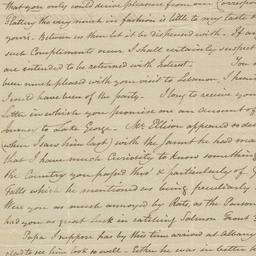 that you only could derive pleasure from our Correspon
Flattery tho very much in fashion is little to my taste &
yours. Between us then let it be dispensed with. If an
such Compliments occur I shall certainly suspect
are intended to be returned with Interest. You
been much pleased with your visit to Lebanon, I hear
I could have been of the party. I long to receive you
Letter in which you promise me an account of
to Lake George. Mr Ellison appeared so de
when I saw him last) with the Jaunt he had ma
that I have much Curiosity to know something
the Country you passed thro' & particularly of
Falls which he mentioned as being peculiarly
Were you as much annoyed by Rats, as the Parson
had you as great Luck in catching Salmon Trout?
Papa I suppose has by this time arrived at Albany
glad to see him look so well. Either he was in better